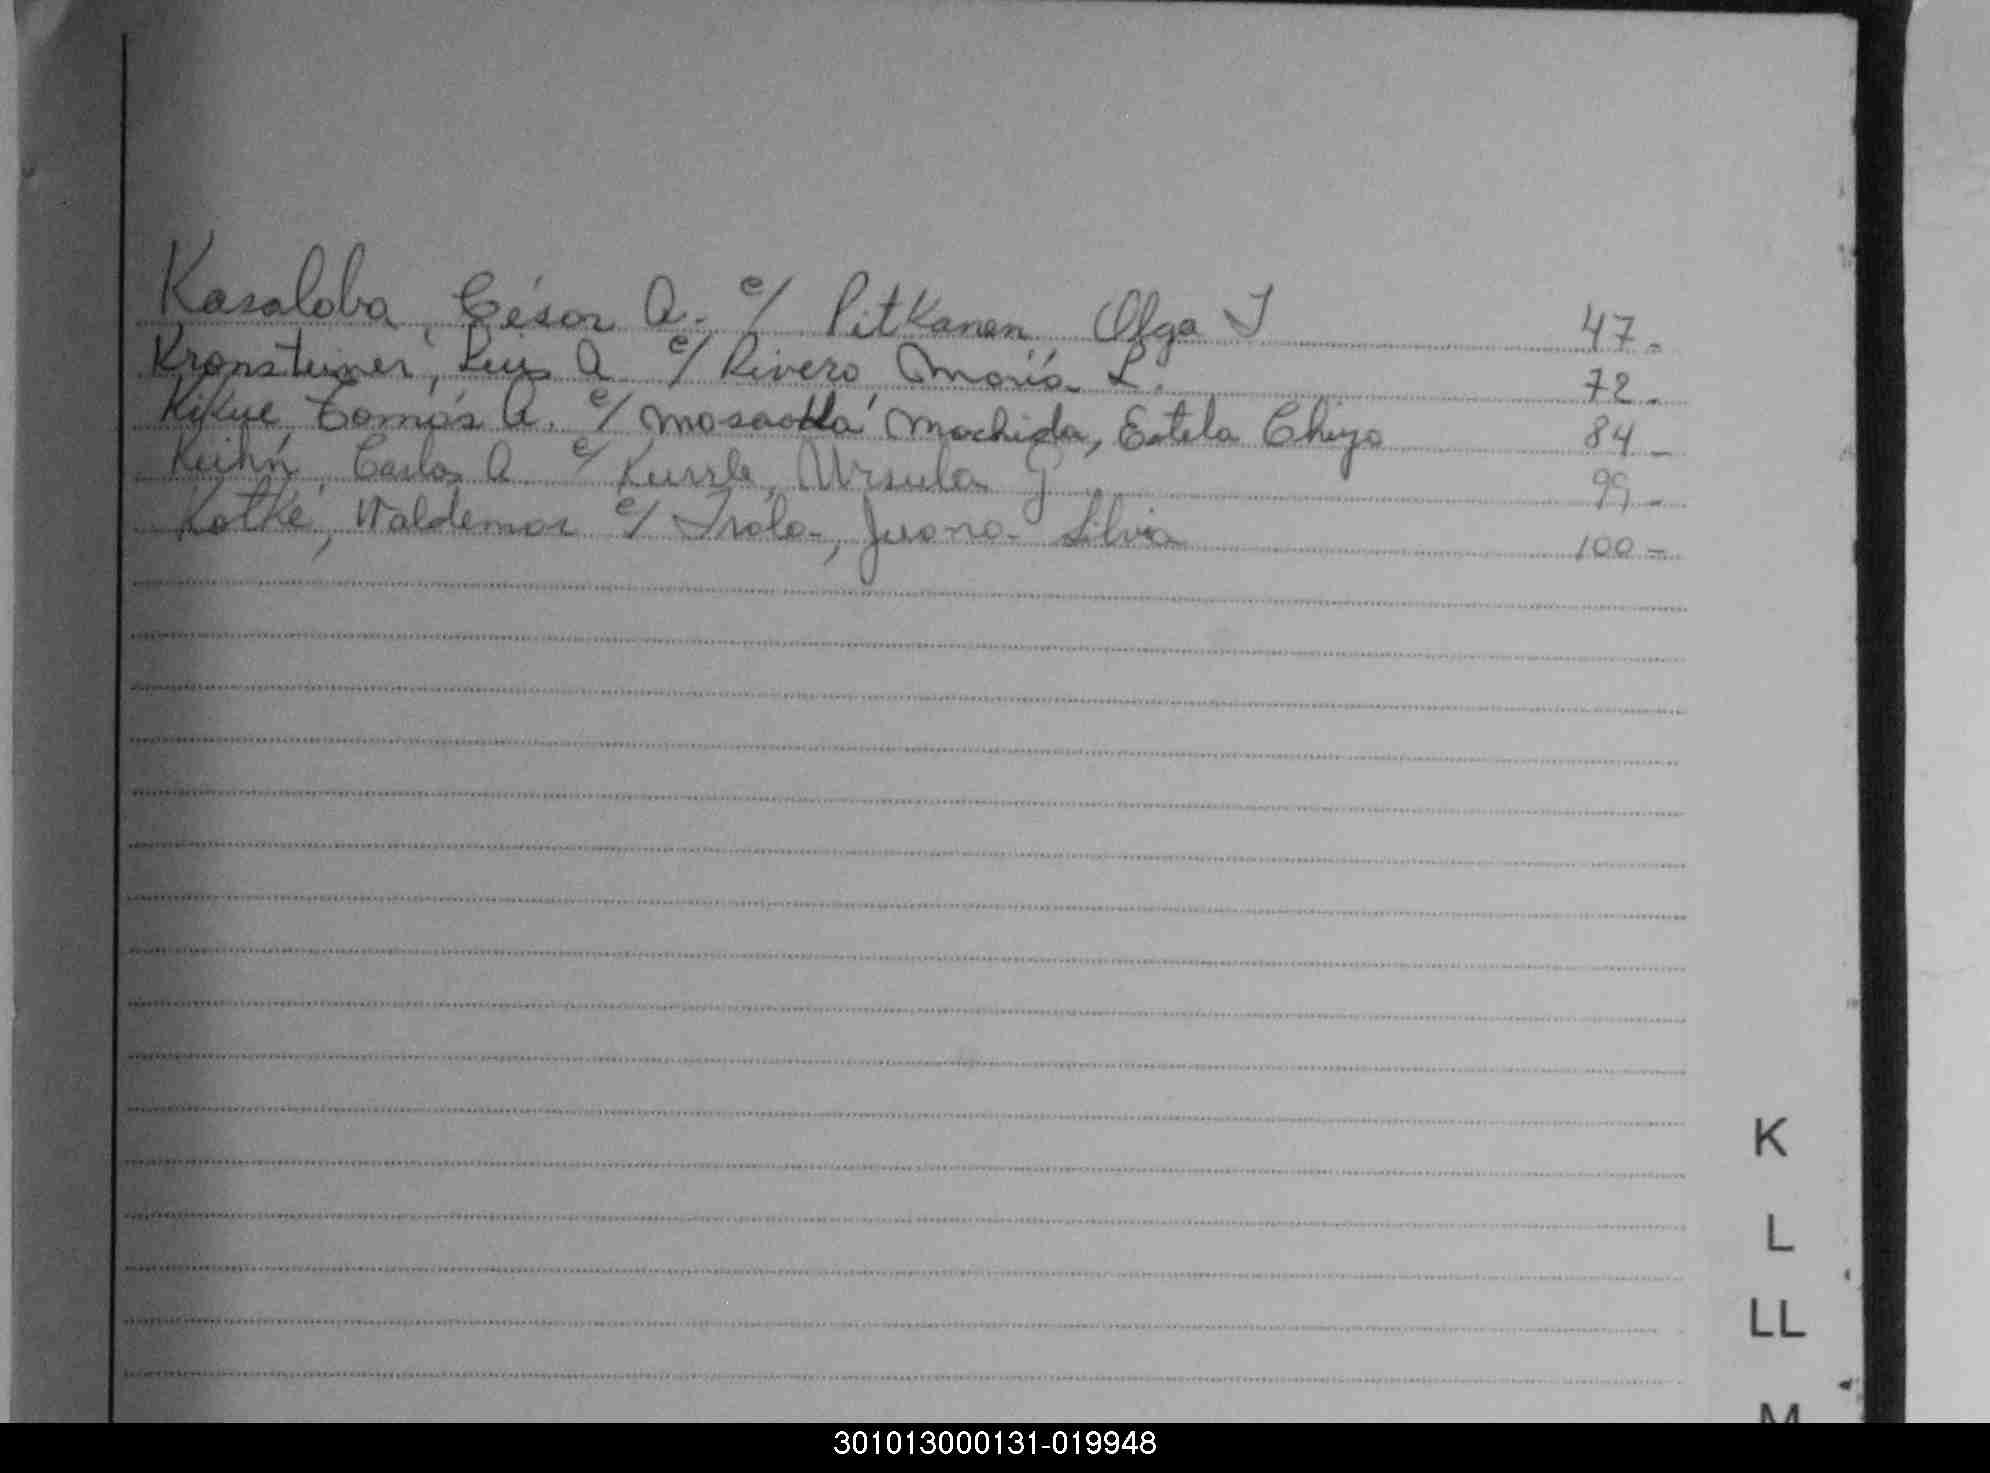 Kasaloba, César A. c/ Pitkanen Olga I 47-
Kronsteiner, Luis A c/ Rivero María L. 72-
Kikue, Tomás A. c/ Machida, Estela Chiyo 84-
Carlos A c/ Ursula G 99-
Kotke, Waldemar c/ Juana Silvia 100-
K
L
LL
M
301013000131-019948